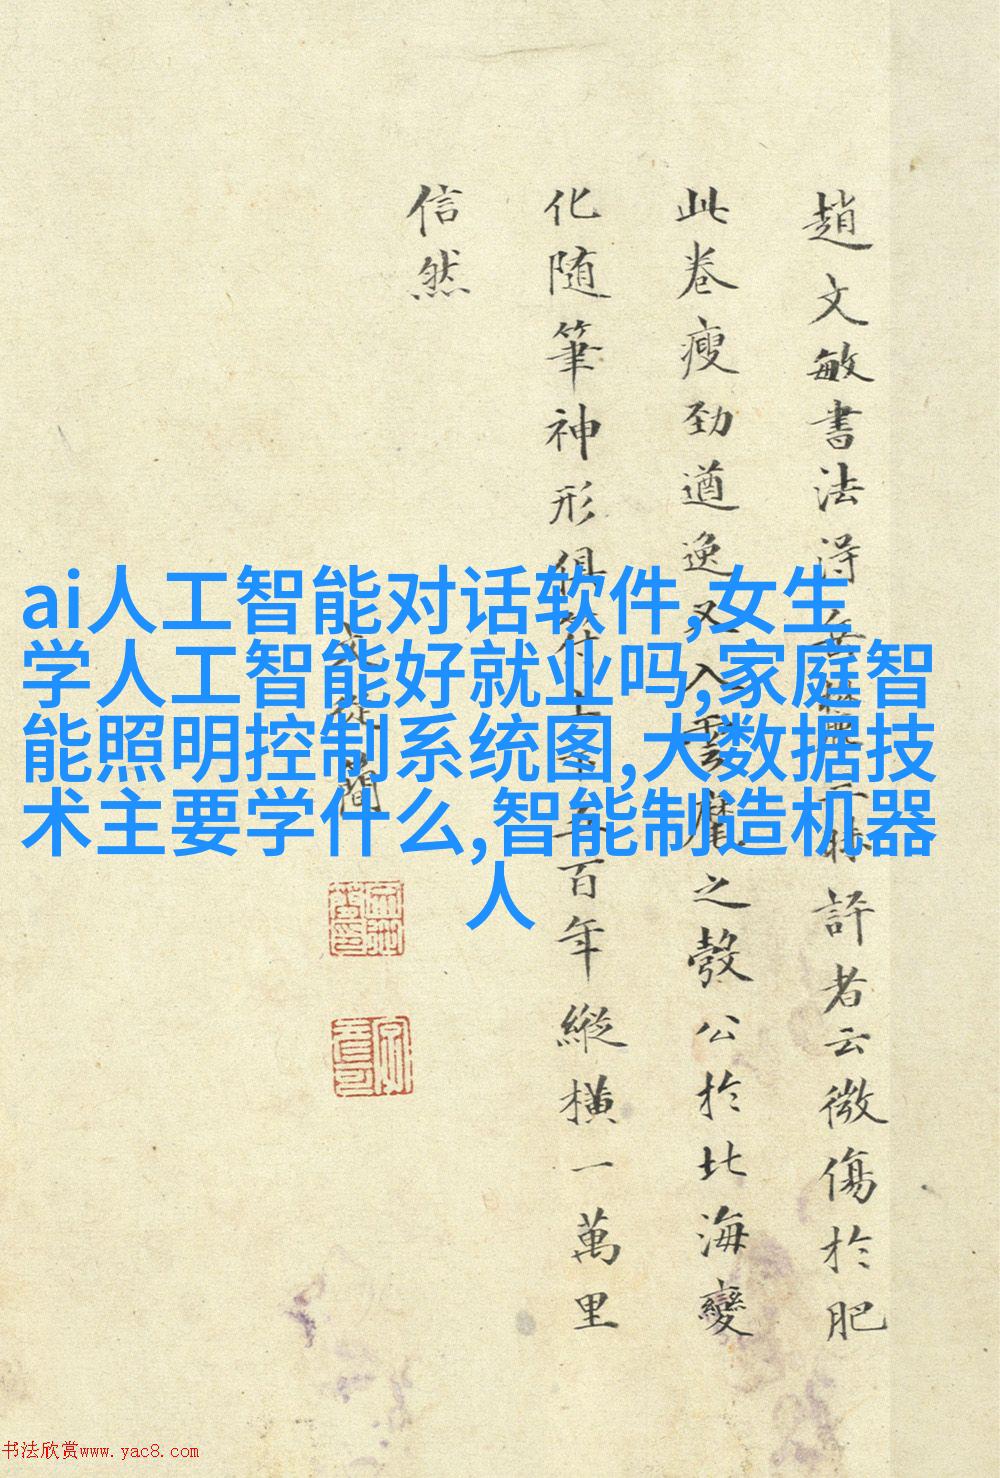 ai人工智能对话软件,女生
学人工智能好就业吗,家庭智
能照明控制系统图,大数据技
术主要学什么,智能制造机器
人
趙文敏書法淂無評者云微傷於肥
此卷瘦勁遒逸又入雲麾之彀公於北海變
化随筆神形俱符上下五百年縱橫一萬里
信然
文從簡
书法欣赏www.yac8.com